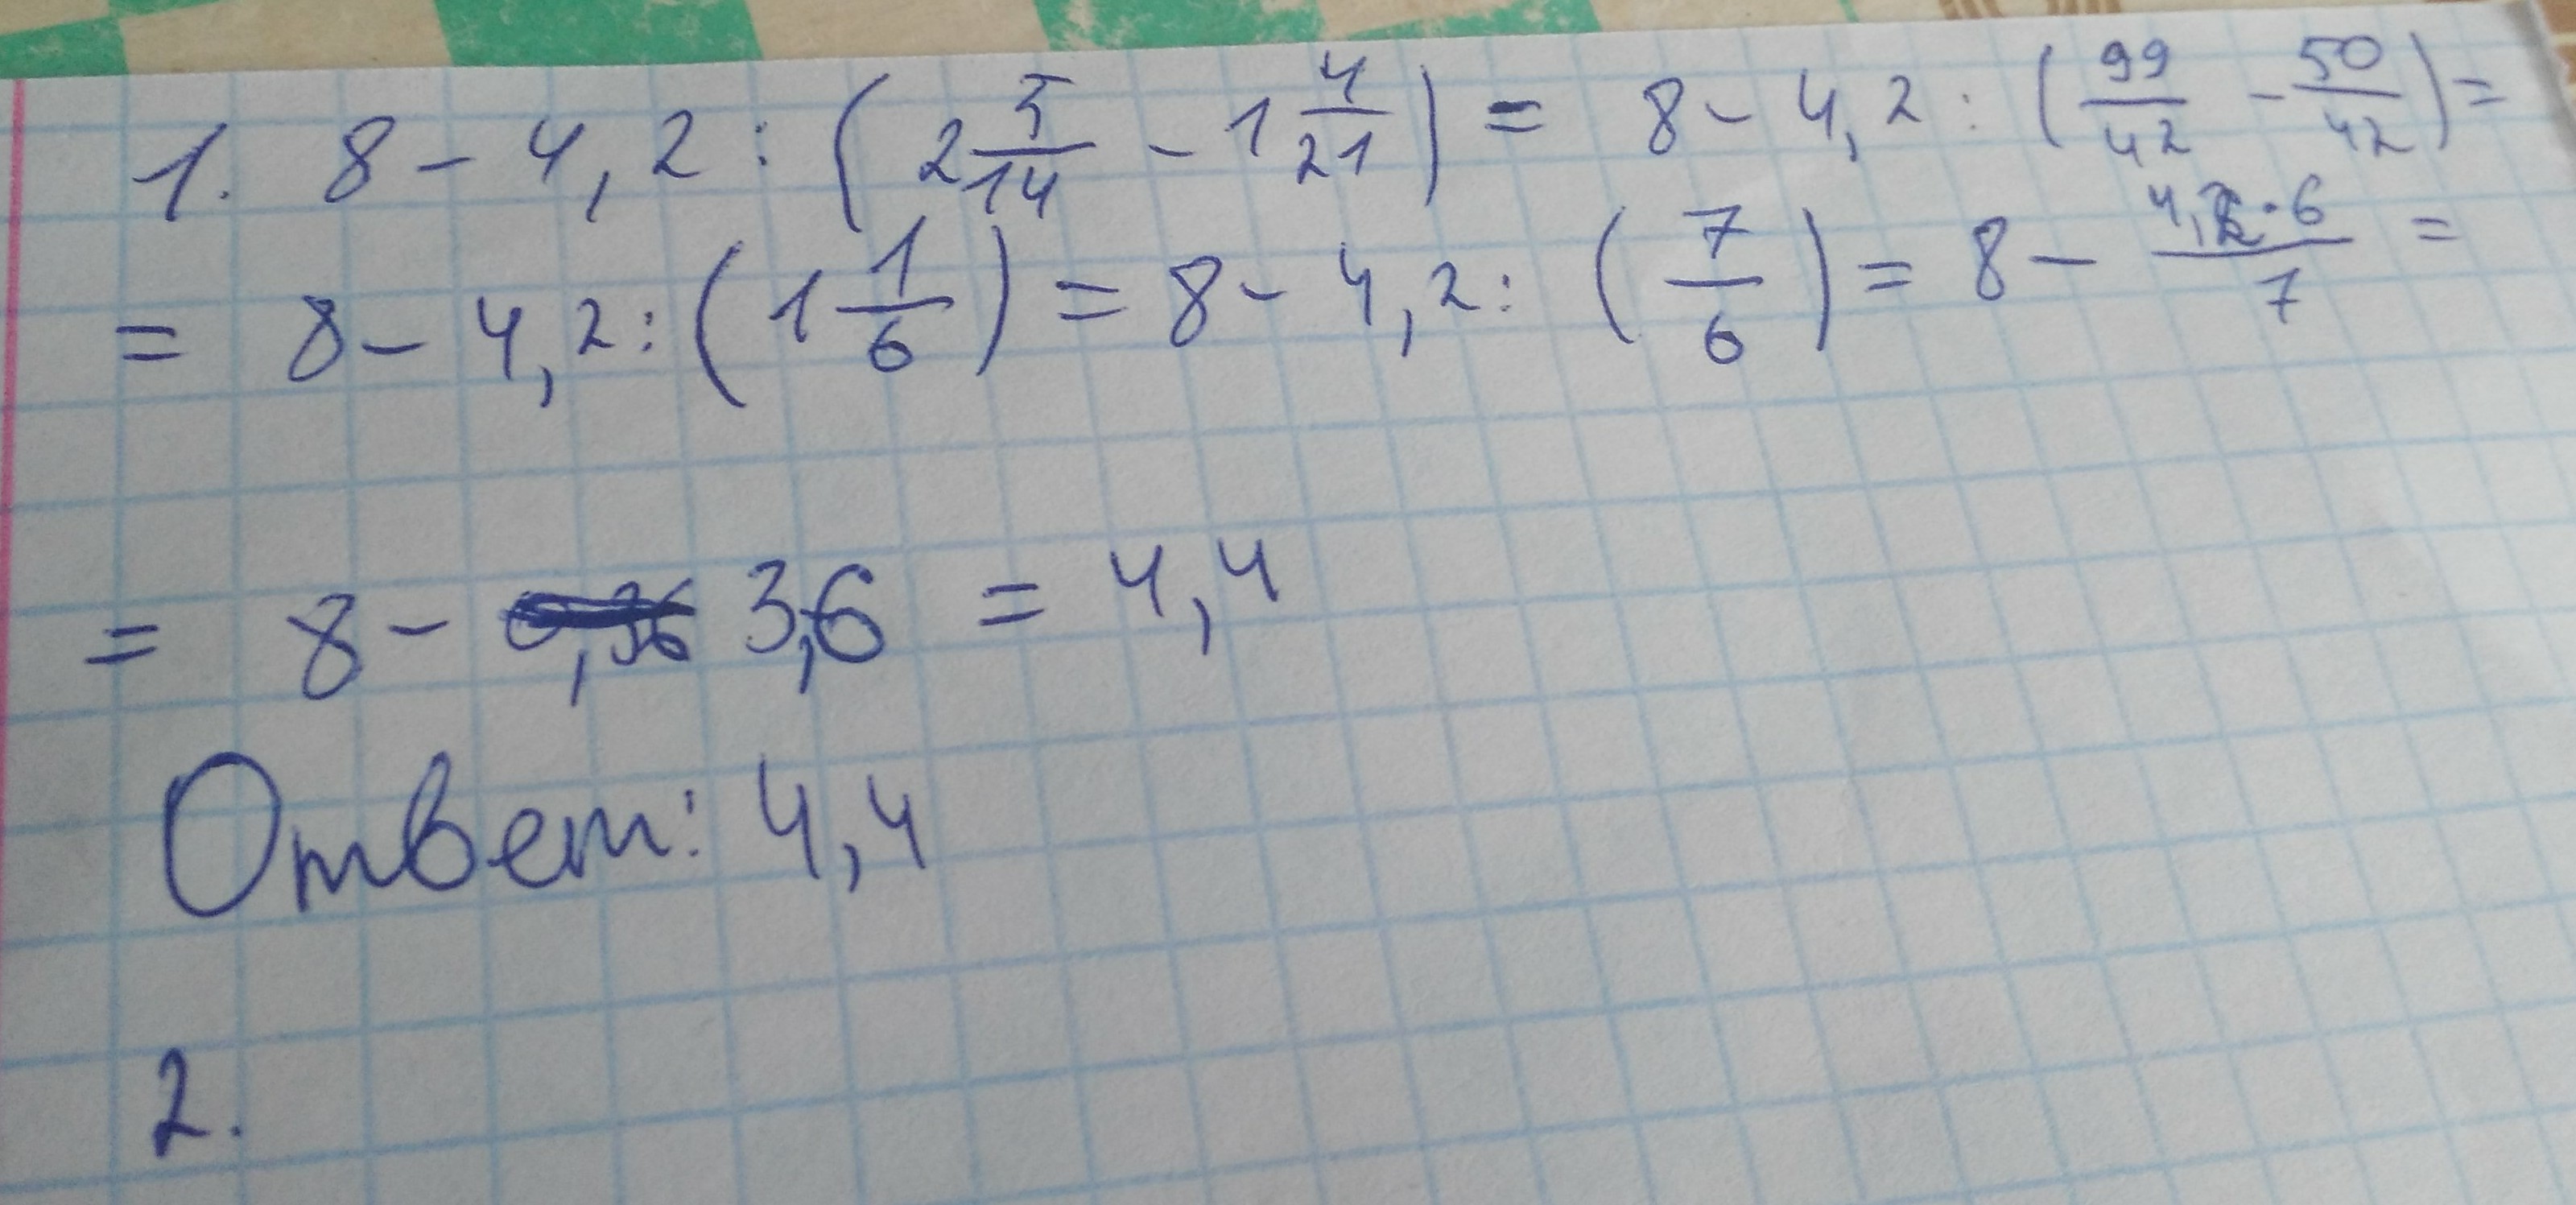 1. 8 - 4,2 : (2 5/14 - 1 4/21) = 8 - 4,2 : (99/42 - 50/42) =
= 8 - 4,2 : (1 1/6) = 8 - 4,2 : (7/6) = 8 - 4,2·6/7 =
= 8 - 3,6 = 4,4
Ответ: 4,4
2.